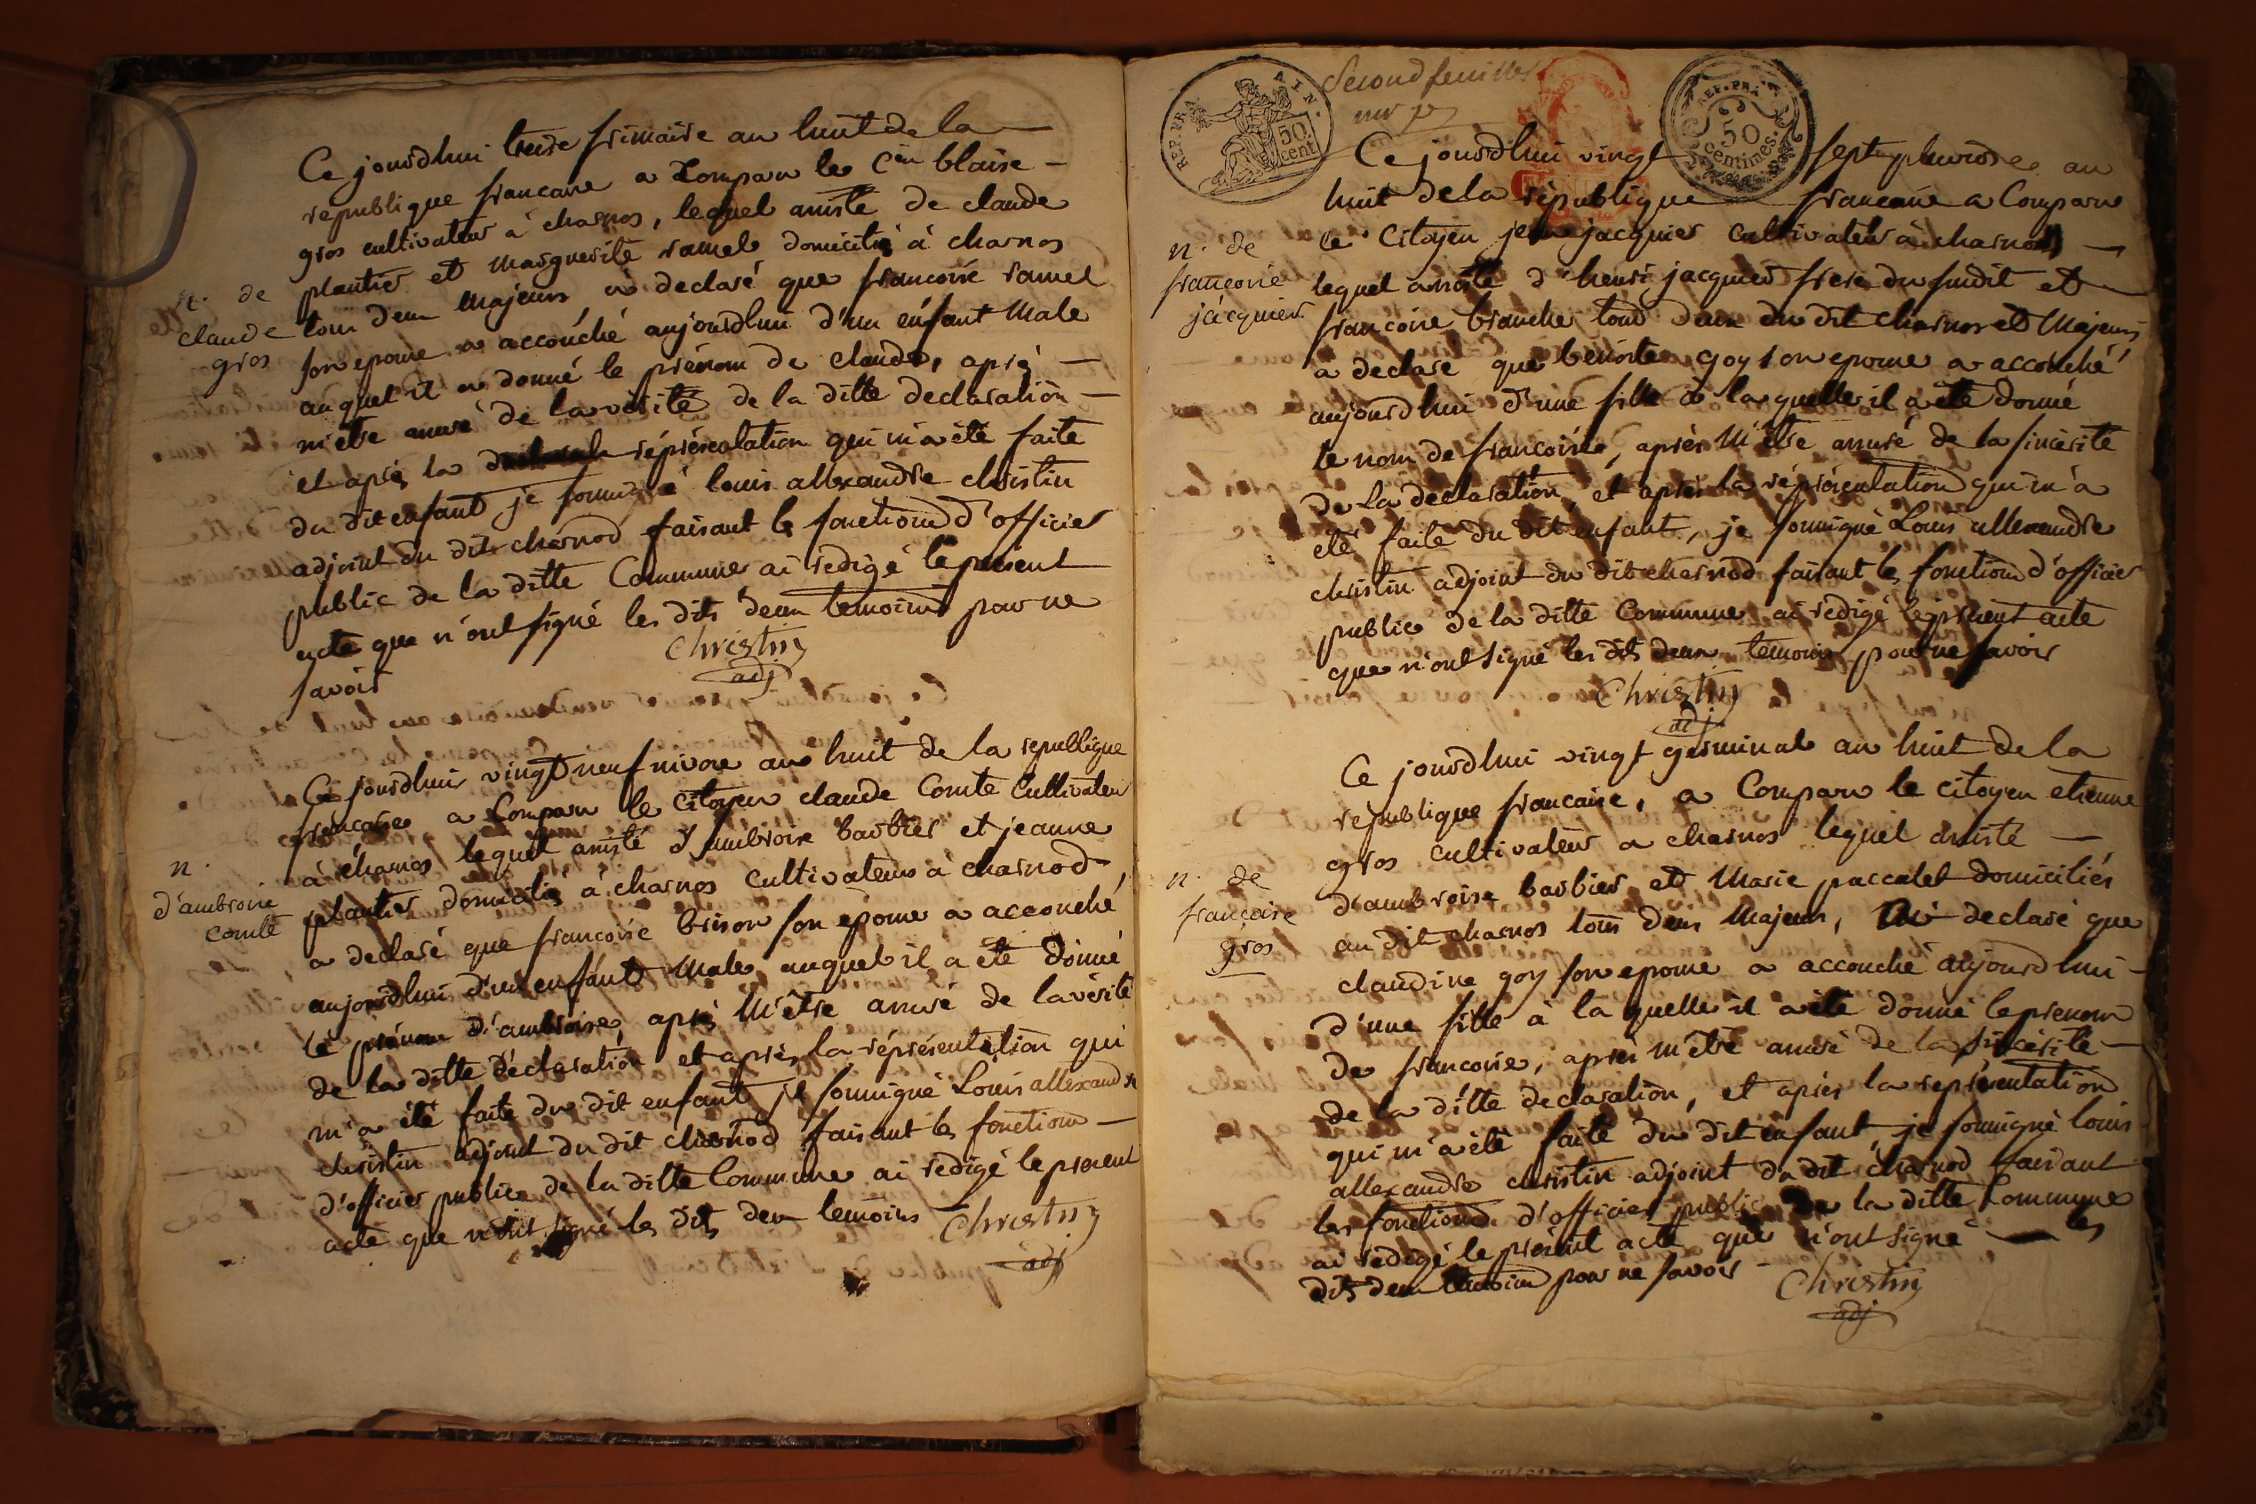 Ce jourdhui treise frimaire an huit de la
republique francaise a Comparu le Cen blaise
gros cultivateur à charnos, lequel assisté de claude
plantier et marguerite ramel domicilié à charnos
n. de
claude
gros
tous deux Majeurs, a declaré que francoise ramel
son epouse a accouché aujourdhui d'un enfant Male
auquel il a donné le prénom de claude, aprés
m'etre assuré de la vérité de la ditte declaration
et aprés la réprésentation qui m'a été faite
du dit enfant je soussigné louis allexandre christin
adjoint du dit charnod faisant les fonctions d'officier
public de la ditte Commune ai redigé le présent
acte que n'ont signé les dits deux temoins pour ne
savoir
Christin
adj
Ce jourdhui vingt neuf nivose an huit de la republique
francaise a Comparu le citoyen claude Comte Cultivateur
à charnos lequel assisté d'ambroise barbier et jeanne
n.
d'ambroise
comte
plantier domiciliés à charnos cultivateurs à charnod,
a declaré que francoise brison son epouse a accouché
aujourdhui d'un enfant Male, auquel il a été donné
le prénom d'ambroise, aprés M'être assuré de la vérité
de la ditte déclaration et aprés la réprésentation qui
m'a été faite du dit enfant je soussigné Louis allexandre
christin adjoint du dit charnod faisant les fonctions
d'officier public de la ditte Commune ai redigé le present
acte que n'ont signé les dits deux temoins
Christin
adj
REP. FRA.
AIN.
50
cent.
Second feuillet
REP. FRA.
50
centimes.
Ce jourdhui vingt sept pluviose an
huit de la république francaise a Comparu
n. de
francoise
jacquier
le Citoyen jean jacquier cultivateur à charnos,
lequel assisté d'henri jacquier frere du susdit et
francoise branche tous deux du dit charnos et Majeurs
a declaré que benoite goy son epouse a accouché
aujourdhui d'une fille a laquelle il a été donné
le nom de francoise, après M'etre assuré de la sincérité
de la declaration, et aprés la réprésentation qui m'a
été faite du dit enfant, je soussigné Louis allexandre
christin adjoint du dit charnod faisant les fonctions d'officier
public de la ditte Commune ai redigé le present acte
que n'ont signé les dits deux temoins pour ne savoir
Christin
adj
Ce jourdhui vingt germinal an huit de la
république francaise, a Comparu le citoyen etienne
gros cultivateur a charnos lequel assisté
n. de
francoise
gros
d'ambroise barbier et Marie paccalet domiciliés
au dit charnos tous deux Majeurs, a declaré que
claudine goy son epouse a accouché aujourdhui
d'une fille à laquelle il a été donné le prenom
de francoise, après m'etre assuré de la sincérité
de la ditte declaration, et aprés la représentation
qui m'a été faite du dit enfant, je soussigné louis
allexandre christin adjoint du dit charnod faisant
les fonctions d'officier public de la ditte Commune
ai redigé le présent acte que n'ont signé les
dits deux temoins pour ne savoir
Christin
adj